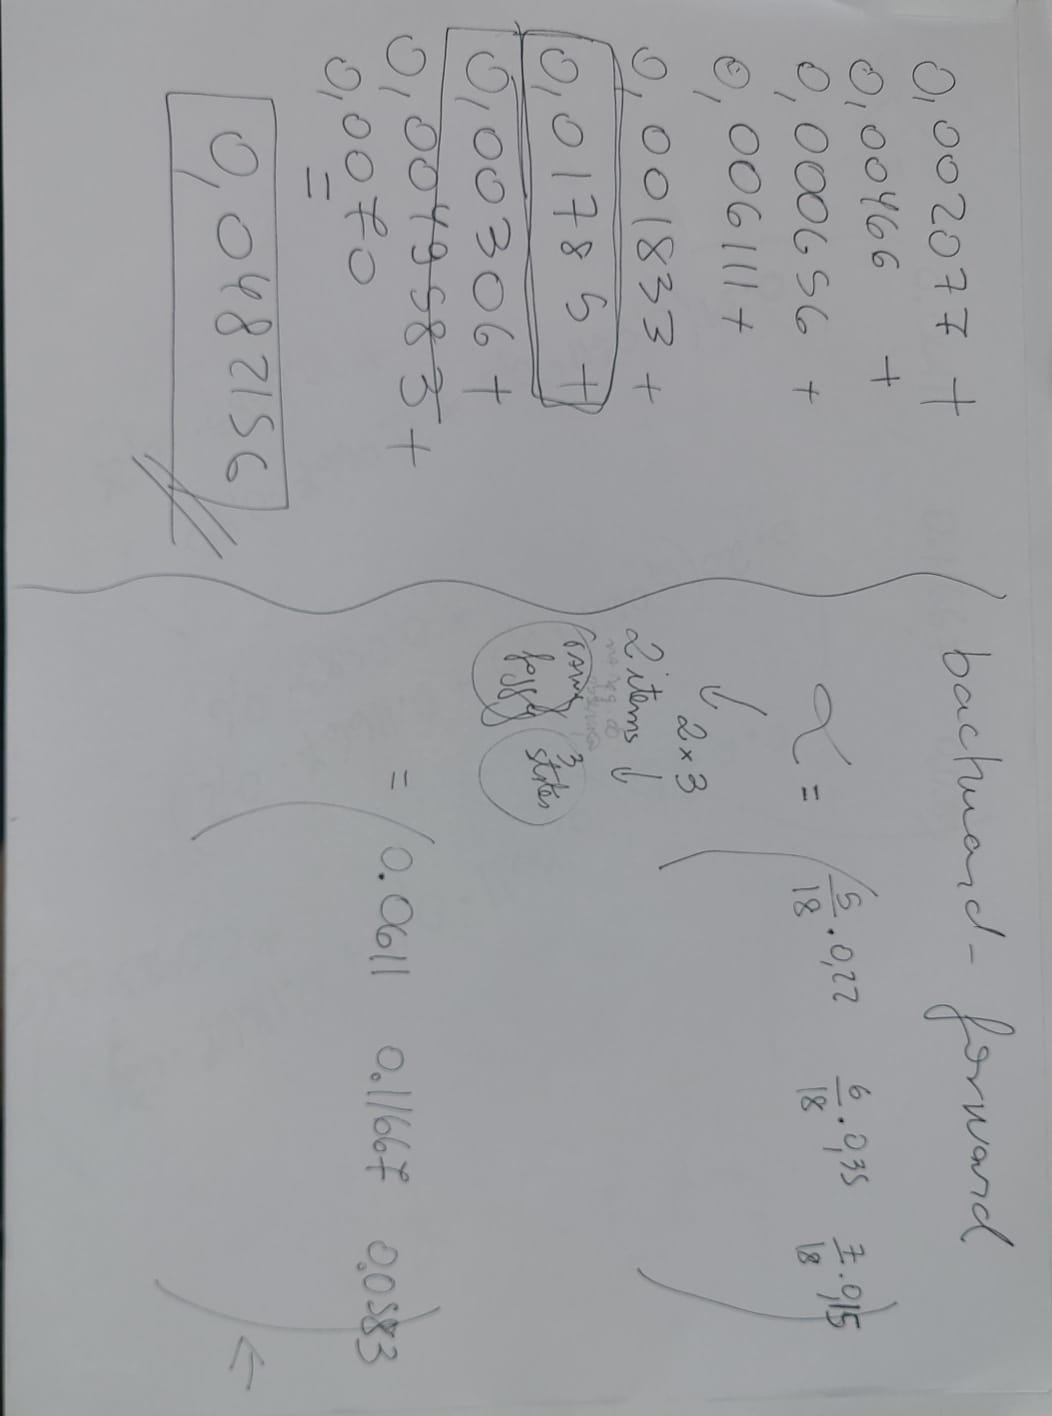 0,002077 +
0,00466 +
0,000656 +
0,006111 +
0,001833 +
0,01785 +
0,00306 +
0,0049583 +
0,0070
=
0,0482156
bachward - forward
α = ( 5/18 · 0,22 6/18 · 0,35 7/18 · 0,15 )
↓ 2 × 3
2 items ↓
foggy
3
states
= ( 0.0611 0.11667 0.0583 )